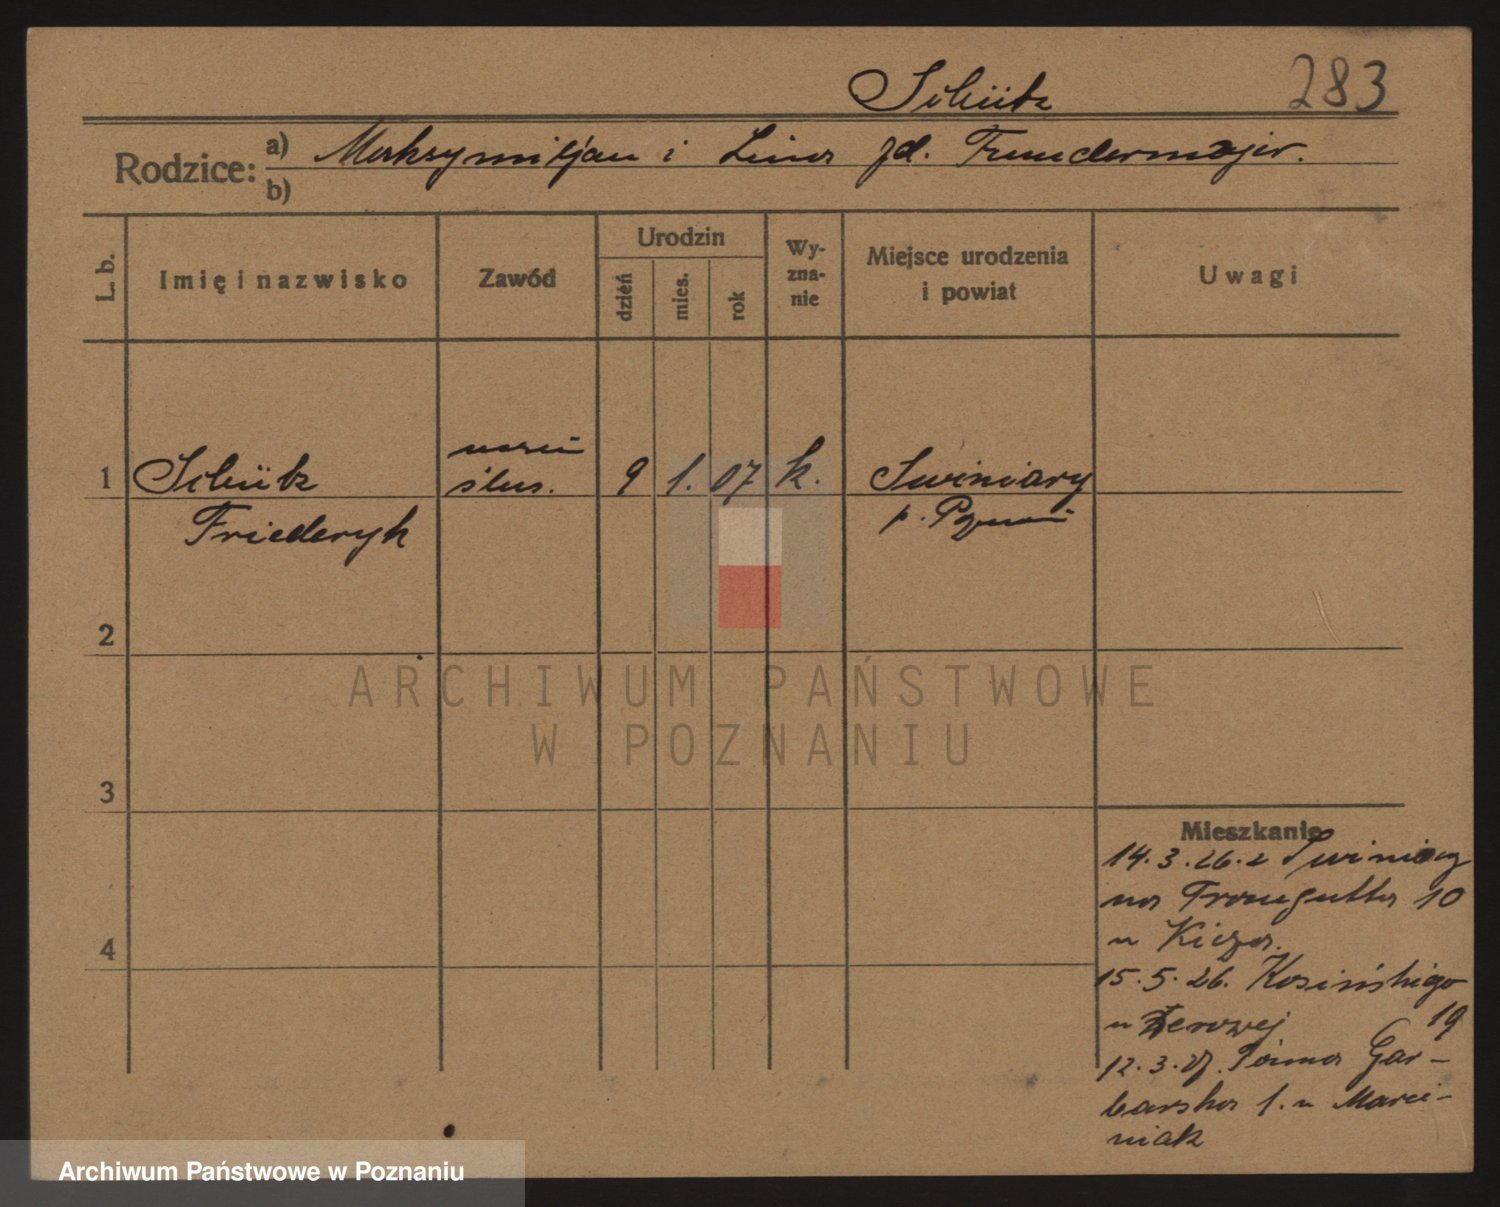 Schütz 283
Rodzice: a) Maksymiljan i Lina zd. Trundermajer.
b)
L. b. Imię i nazwisko Zawód Urodzin dzień mies. rok Wyznanie Miejsce urodzenia i powiat Uwagi
1 Schütz uczeń ślus. 9 1. 07 k. Swiniary
Friederyk p. Poznań
2
3
4
ARCHIWUM PAŃSTWOWE
W POZNANIU
Mieszkanie
14. 3. 26. z Swiniary
na Traugutta 10
u Kicza.
15. 5. 26. Kosińskiego
u 19
12. 3. 27. Gar-
barska 1. u Marci-
niak
Archiwum Państwowe w Poznaniu